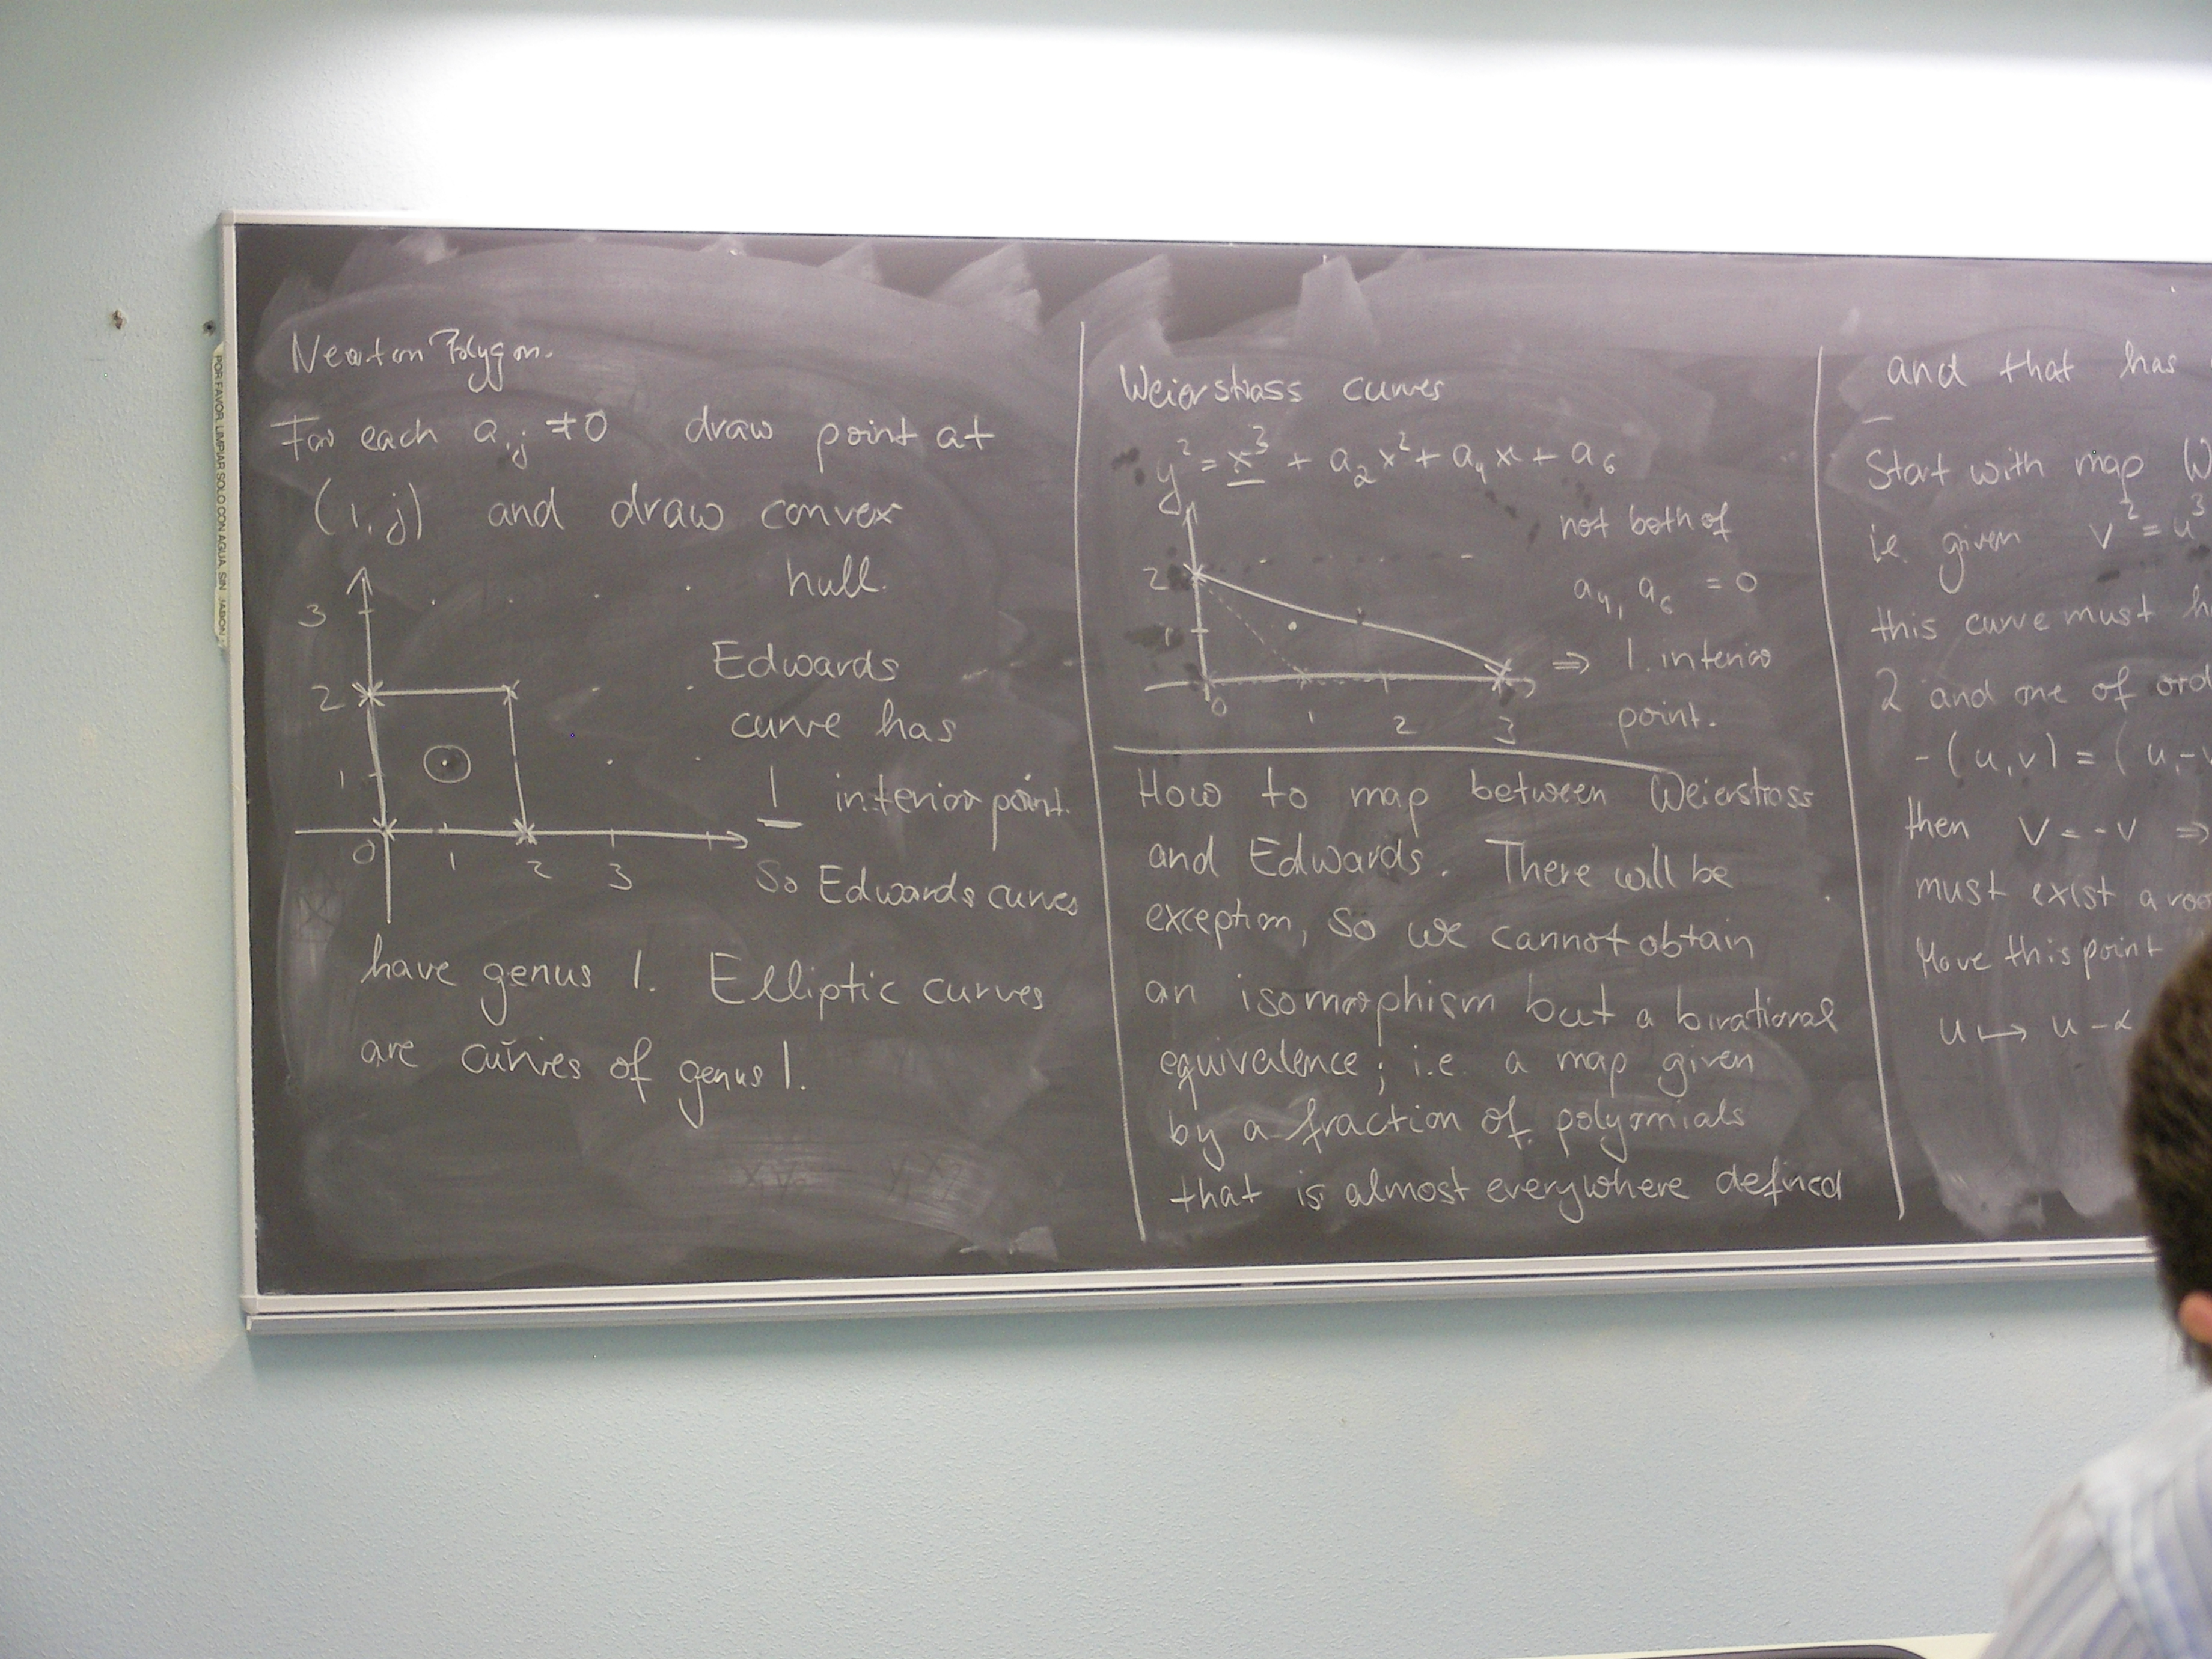 Newton Polygon.
For each a_ij ≠ 0 draw point at
(i,j) and draw convex
hull.
3
2
1
0 1 2 3
Edwards
curve has
1 interior point.
So Edwards curves
have genus 1. Elliptic curves
are curves of genus 1.
Weierstrass curves
y² = x³ + a₂x² + a₄x + a₆
not both of
a₄, a₆ = 0
⇒ 1 interior
point.
2
1
0 1 2 3
How to map between Weierstrass
and Edwards. There will be
exception, so we cannot obtain
an isomorphism but a birational
equivalence; i.e. a map given
by a fraction of polyomials
that is almost everywhere defined
and that has
Start with map
i.e. given v² = u³
this curve must
2 and one of
-(u,v) = (u,-
then v = -v ⇒
must exist a
Move this point
u ↦ u - α
POR FAVOR, LIMPIAR SOLO CON AGUA, SIN JABON